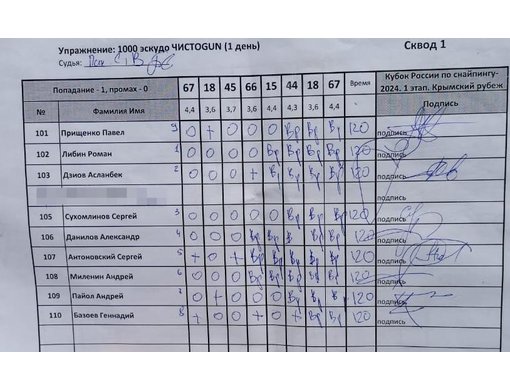 Упражнение: 1000 эскудо ЧИСТОGUN (1 день)
Сквод 1
Судья:
Попадание - 1, промах - 0 67 18 45 66 15 44 18 67 Время Кубок России по снайпингу-
2024. 1 этап. Крымский рубеж
№ Фамилия Имя 4,4 3,6 3,7 3,6 4,4 4,3 3,6 4,4 Подпись
101 Прищенко Павел 9 0 + 0 0 0 Вр Вр Вр 120 подпись
102 Либин Роман 1 0 0 0 0 Вр Вр Вр Вр 120 подпись
103 Дзиов Асланбек 2 0 0 0 + Вр Вр Вр Вр 120 подпись
подпись
105 Сухомлинов Сергей 3 0 0 0 0 0 Вр Вр Вр 120 подпись
106 Данилов Александр 4 0 0 0 Вр Вр Вр Вр 120 подпись
107 Антоновский Сергей 5 + 0 + Вр Вр Вр Вр Вр 120 подпись
108 Миленин Андрей 6 0 0 0 Вр Вр Вр Вр Вр 120 подпись
109 Пайол Андрей 7 0 + 0 0 0 Вр Вр Вр 120 подпись
110 Базоев Геннадий 8 + 0 0 + 0 + Вр Вр 120 подпись